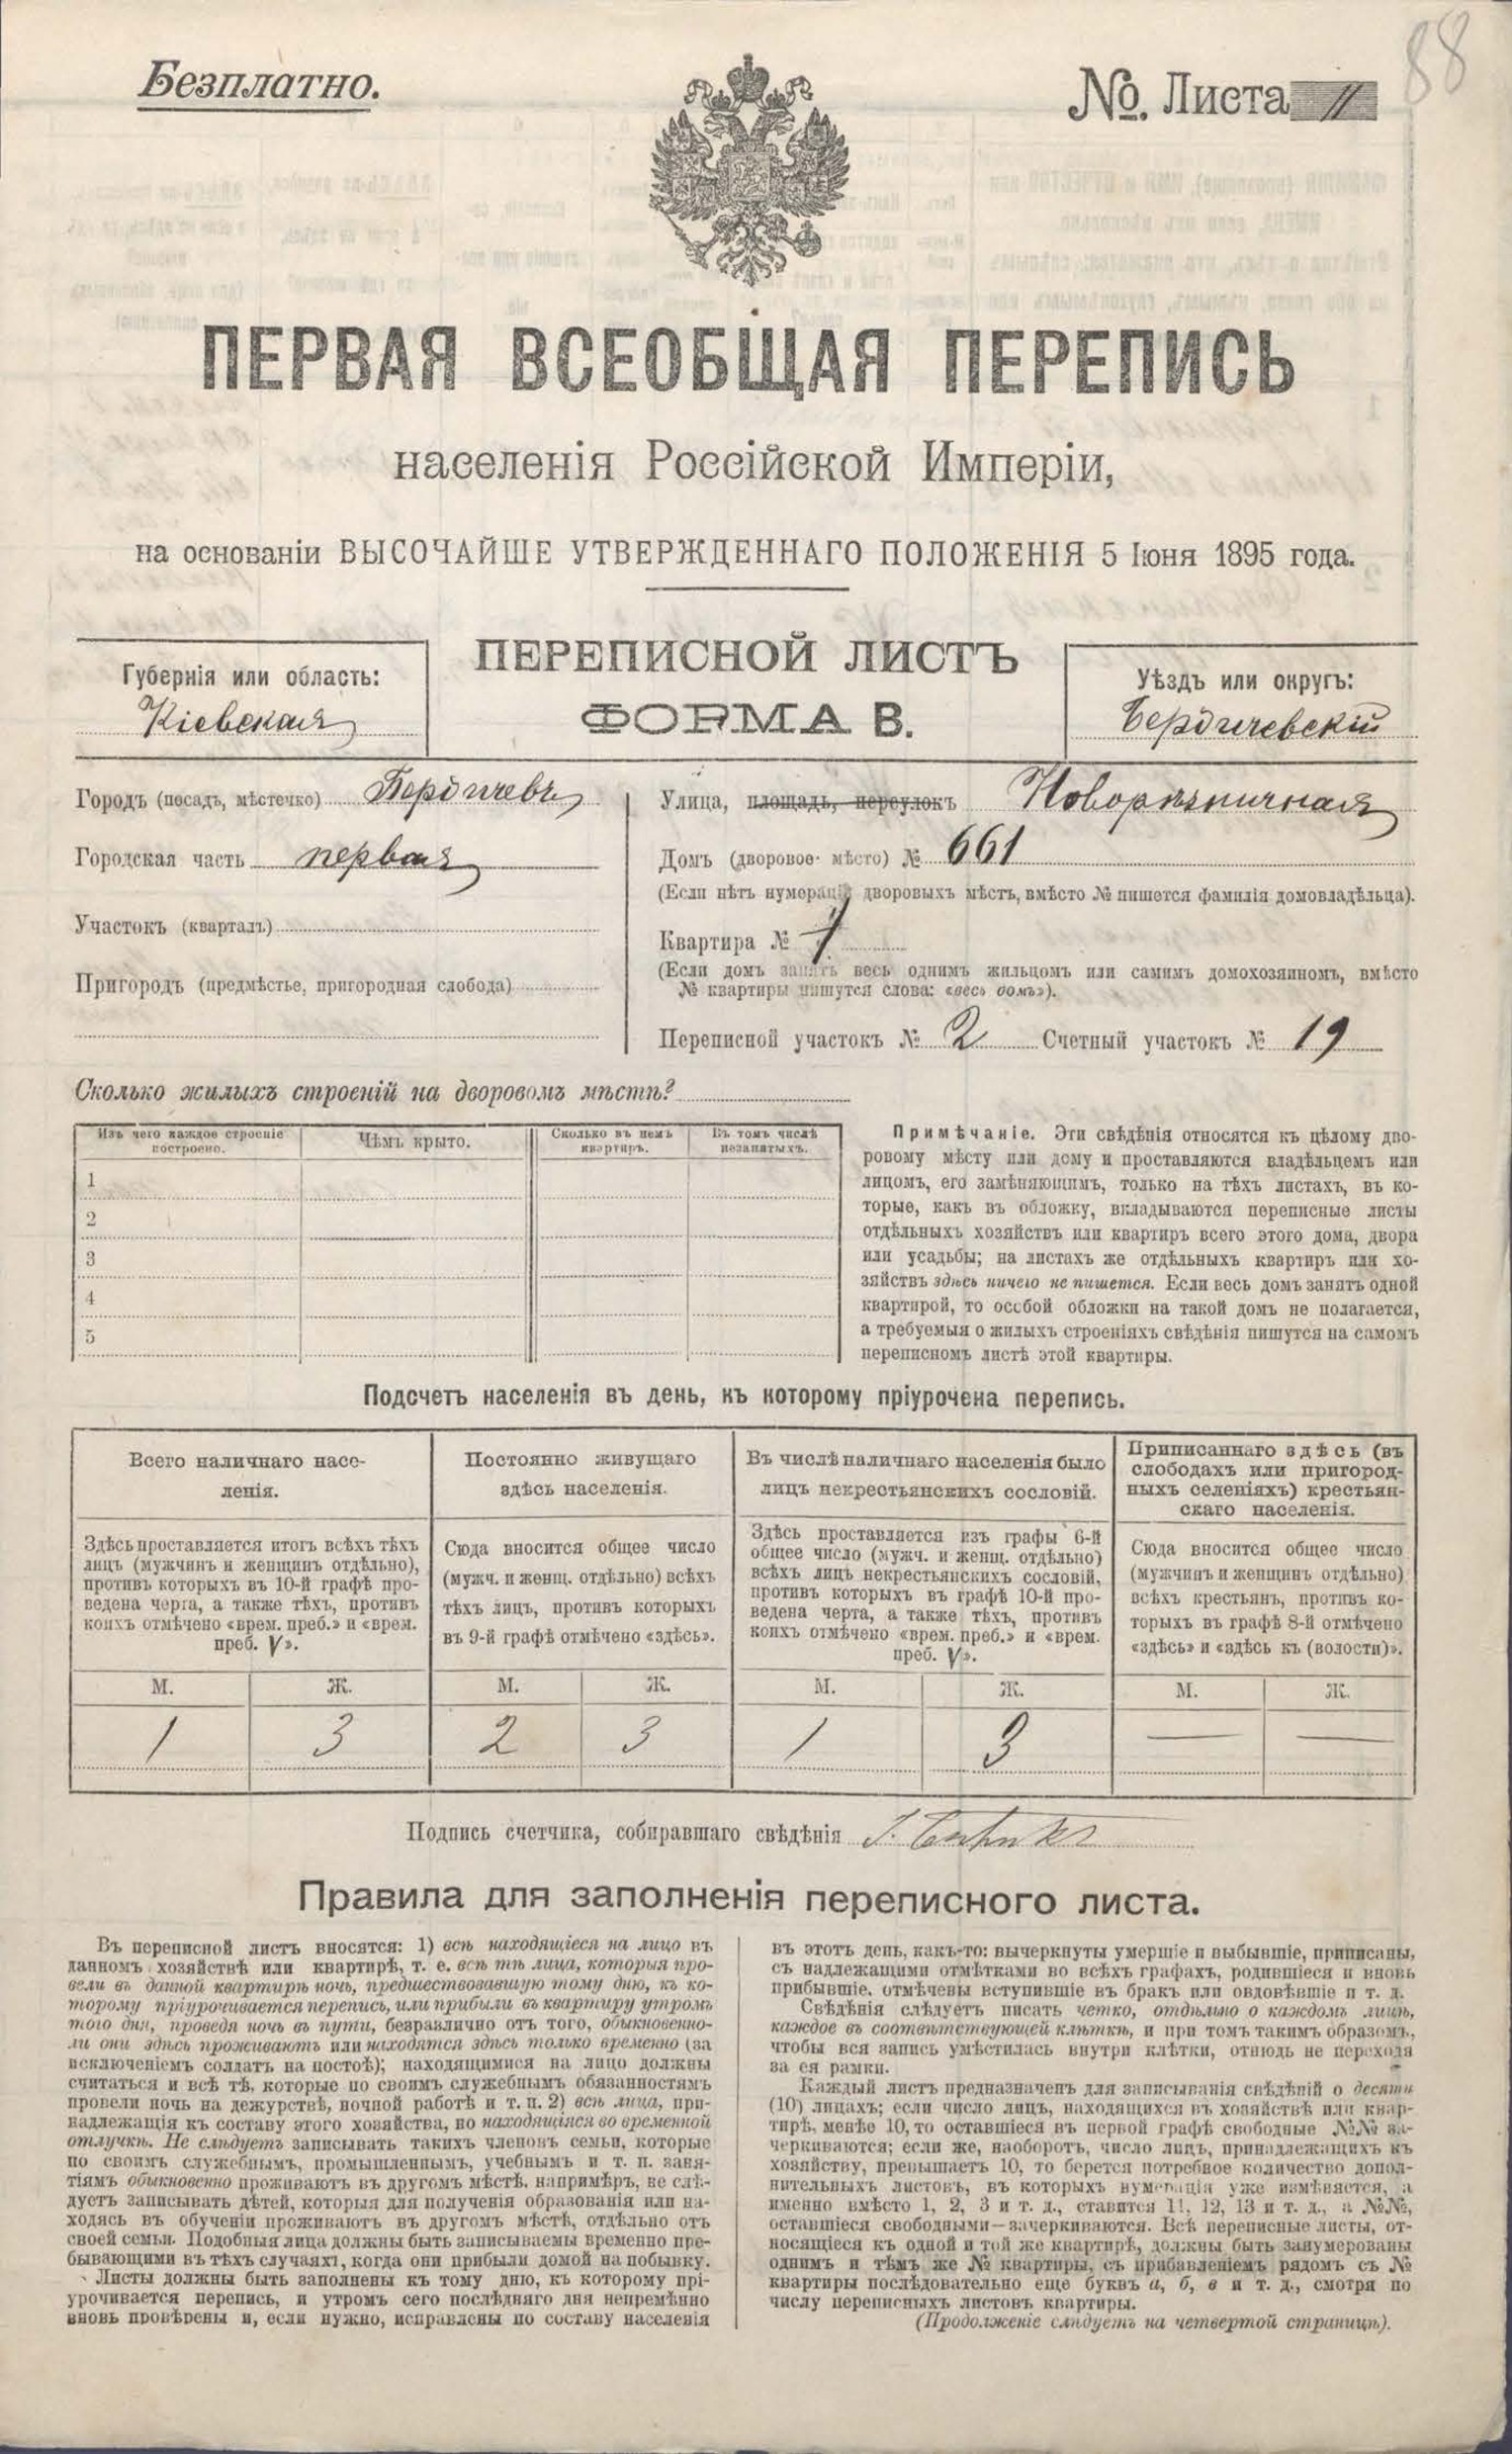 88
Безплатно.
№. Листа 11
ПЕРВАЯ ВСЕОБЩАЯ ПЕРЕПИСЬ
населенія Россійской Имперіи,
на основаніи ВЫСОЧАЙШЕ УТВЕРЖДЕННАГО ПОЛОЖЕНІЯ 5 Іюня 1895 года.
ПЕРЕПИСНОЙ ЛИСТЪ
ФОРМА В.
Губернія или область:
Кіевская
Уѣздъ или округъ:
Бердичевскій
Городъ (посадъ, мѣстечко) Бердичевъ
Городская часть первая
Участокъ (кварталъ)
Пригородъ (предмѣстье, пригородная слобода)
Улица, площадь, переулокъ Новорѣзничная
Домъ (дворовое мѣсто) № 661
(Если нѣтъ нумераціи дворовыхъ мѣстъ, вмѣсто № пишется фамилія домовладѣльца).
Квартира №
(Если домъ занятъ весь однимъ жильцомъ или самимъ домохозяиномъ, вмѣсто
№ квартиры пишутся слова: «весь домъ»).
Переписной участокъ № 2 Счетный участокъ № 19
Сколько жилыхъ строеній на дворовомъ мѣстѣ?
Изъ чего каждое строеніе
построено.
Чѣмъ крыто.
Сколько въ немъ
квартиръ.
Въ томъ числѣ
незанятыхъ.
1
2
3
4
5
Примѣчаніе. Эти свѣдѣнія относятся къ цѣлому дво-
ровому мѣсту или дому и проставляются владѣльцемъ или
лицомъ, его замѣняющимъ, только на тѣхъ листахъ, въ ко-
торые, какъ въ обложку, вкладываются переписные листы
отдѣльныхъ хозяйствъ или квартиръ всего этого дома, двора
или усадьбы; на листахъ же отдѣльныхъ квартиръ или хо-
зяйствъ здѣсь ничего не пишется. Если весь домъ занятъ одной
квартирой, то особой обложки на такой домъ не полагается,
а требуемыя о жилыхъ строеніяхъ свѣдѣнія пишутся на самомъ
переписномъ листѣ этой квартиры.
Подсчетъ населенія въ день, къ которому пріурочена перепись.
Всего наличнаго насе-
ленія.
Постоянно живущаго
здѣсь населенія.
Въ числѣ наличнаго населенія было
лицъ некрестьянскихъ сословій.
Приписаннаго здѣсь (въ
слободахъ или пригород-
ныхъ селеніяхъ) крестьян-
скаго населенія.
Здѣсь проставляется итогъ всѣхъ тѣхъ
лицъ (мужчинъ и женщинъ отдѣльно),
противъ которыхъ въ 10-й графѣ про-
ведена черта, а также тѣхъ, противъ
коихъ отмѣчено «врем. преб.» и «врем.
преб. V».
Сюда вносится общее число
(мужч. и женщ. отдѣльно) всѣхъ
тѣхъ лицъ, противъ которыхъ
въ 9-й графѣ отмѣчено «здѣсь».
Здѣсь проставляется изъ графы 6-й
общее число (мужч. и женщ. отдѣльно)
всѣхъ лицъ некрестьянскихъ сословій,
противъ которыхъ въ графѣ 10-й про-
ведена черта, а также тѣхъ, противъ
коихъ отмѣчено «врем. преб.» и «врем.
преб. V».
Сюда вносится общее число
(мужчинъ и женщинъ отдѣльно)
всѣхъ крестьянъ, противъ ко-
торыхъ въ графѣ 8-й отмѣчено
«здѣсь» и «здѣсь къ (волости)».
М. Ж. М. Ж. М. Ж. М. Ж.
1 3 2 3 1 3 — —
Подпись счетчика, собиравшаго свѣдѣнія
Правила для заполненія переписного листа.
Въ переписной листъ вносятся: 1) всѣ находящіеся на лицо въ
данномъ хозяйствѣ или квартирѣ, т. е. всѣ тѣ лица, которыя про-
вели въ данной квартирѣ ночь, предшествовавшую тому дню, къ ко-
торому пріурочивается перепись, или прибыли въ квартиру утромъ
того дня, проведя ночь въ пути, безразлично отъ того, обыкновенно-
ли они здѣсь проживаютъ или находятся здѣсь только временно (за
исключеніемъ солдатъ на постоѣ); находящимися на лицо должны
считаться и всѣ тѣ, которые по своимъ служебнымъ обязанностямъ
провели ночь на дежурствѣ, ночной работѣ и т. п. 2) всѣ лица, при-
надлежащія къ составу этого хозяйства, но находящіяся во временной
отлучкѣ. Не слѣдуетъ записывать такихъ членовъ семьи, которые
по своимъ служебнымъ, промышленнымъ, учебнымъ и т. п. заня-
тіямъ обыкновенно проживаютъ въ другомъ мѣстѣ, напримѣръ, не слѣ-
дуетъ записывать дѣтей, которыя для полученія образованія или на-
ходясь въ обученіи проживаютъ въ другомъ мѣстѣ, отдѣльно отъ
своей семьи. Подобныя лица должны быть записываемы временно пре-
бывающими въ тѣхъ случаяхъ, когда они прибыли домой на побывку.
Листы должны быть заполнены къ тому дню, къ которому прі-
урочивается перепись, и утромъ сего послѣдняго дня непремѣнно
вновь провѣрены и, если нужно, исправлены по составу населенія
въ этотъ день, какъ-то: вычеркнуты умершіе и выбывшіе, приписаны,
съ надлежащими отмѣтками во всѣхъ графахъ, родившіеся и вновь
прибывшіе, отмѣчены вступившіе въ бракъ или овдовѣвшіе и т. д.
Свѣдѣнія слѣдуетъ писать четко, отдѣльно о каждомъ лицѣ,
каждое въ соотвѣтствующей клѣткѣ, и при томъ такимъ образомъ,
чтобы вся запись умѣстилась внутри клѣтки, отнюдь не переходя
за ея рамки.
Каждый листъ предназначенъ для записыванія свѣдѣній о десяти
(10) лицахъ; если число лицъ, находящихся въ хозяйствѣ или квар-
тирѣ, менѣе 10, то оставшіеся въ первой графѣ свободные №№ за-
черкиваются; если же, наоборотъ, число лицъ, принадлежащихъ къ
хозяйству, превышаетъ 10, то берется потребное количество допол-
нительныхъ листовъ, въ которыхъ нумерація уже измѣняется, а
именно вмѣсто 1, 2, 3 и т. д., ставится 11, 12, 13 и т. д., а №№,
оставшіеся свободными—зачеркиваются. Всѣ переписные листы, от-
носящіеся къ одной и той же квартирѣ, должны быть занумерованы
однимъ и тѣмъ же № квартиры, съ прибавленіемъ рядомъ съ №
квартиры послѣдовательно еще буквъ а, б, в и т. д., смотря по
числу переписныхъ листовъ квартиры.
(Продолженіе слѣдуетъ на четвертой страницѣ).